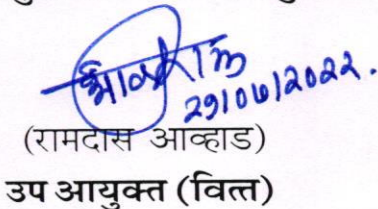 29/07/2022.
(रामदास आव्हाड)
उप आयुक्त (वित्त)